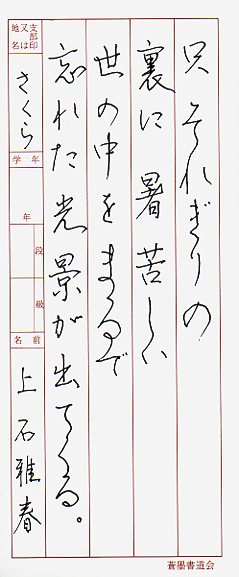 只それぎりの
裏に暑苦しい
世の中をまるで
忘れた光景が出てくる。
支部印又は地名
さくら
学年
年
段
級
名前
上石雅春
蒼墨書道会